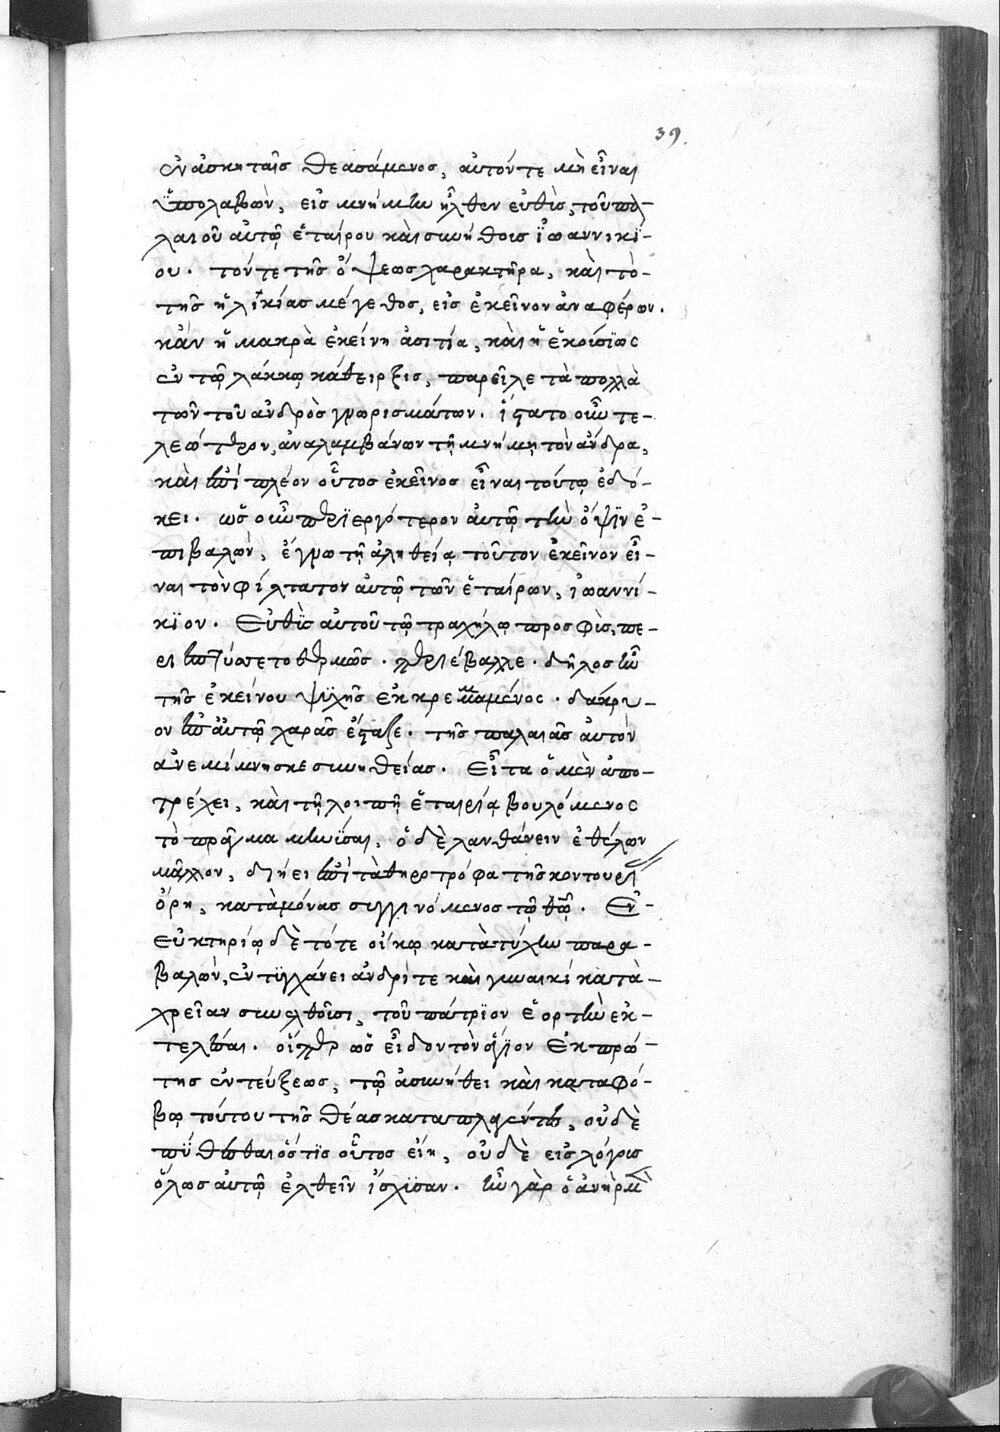 39.
ἐν ἀσκηταῖς θεασάμενος, αὐτόν τε μὴ εἶναι
ὑπολαβὼν, εἰς μνήμην ἦλθεν εὐθὺς, τοῦ πα
λαιοῦ αὐτῷ ἑταίρου καὶ συνήθους ἰωαννικί-
ου. τόν τε τῆς ὄψεως χαρακτῆρα, καὶ τὸ-
τῆς ἡλικίας μέγεθος, εἰς ἐκεῖνον ἀναφέρων.
κἂν ἡ μακρὰ ἐκείνη ἀσιτία, καὶ ἡ ἑκούσιος
ἐν τῷ λάκκῳ κάθειρξις, παρεῖλε τὰ πολλὰ
τῶν τοῦ ἀνδρὸς γνωρισμάτων. ἵστατο οὖν τε-
λεώτερον, ἀναλαμβάνων τῇ μνήμῃ τὸν ἄνδρα,
καὶ ἐπὶ πλέον οὗτος ἐκεῖνος εἶναι τούτῳ ἐδό-
κει. ὡς οὖν περιεργότερον αὐτῷ τὴν ὄψιν ἐ-
πιβαλὼν, ἔγνω τῇ ἀληθείᾳ τοῦτον ἐκεῖνον εἶ-
ναι τὸν φίλτατον αὐτῷ τῶν ἑταίρων, ἰωαννί-
κιον. Εὐθὺς αὐτοῦ τῷ τραχήλῳ προσφὺς, πε-
ριεπτύσσετο θερμῶς. περιέβαλλε. δῆλος ἦν
τῆς ἐκείνου ψυχῆς ἐκκρεμμαμένος. δάκρυ-
ον ἐπ' αὐτῷ χαρᾶς ἔσταξε. τῆς παλαιᾶς αὐτὸν
ἀνεμίμνησκε συνηθείας. Εἶτα ὁ μὲν ἀπο-
τρέχει, καὶ τῇ λοιπῇ ἑταιρίᾳ βουλόμενος
τὸ πρᾶγμα μηνύσαι, ὁ δὲ λανθάνειν ἐθέλων
μᾶλλον, διήει ἐπὶ τὰ θηροτρόφα τῆς κοντουρί
ὄρη, καταμόνας συγγινόμενος τῷ θῷ. Ἐν-
εὐκτηρίῳ δὲ τότε οἴκῳ κατὰ τύχην παρα-
βαλὼν, ἐντυγχάνει ἀνδρί τε καὶ γυναικί κατὰ-
χρείαν συνελθοῦσι, τοῦ πάτριον ἑορτὴν ἐκ-
τελέσαι. οἵπερ ὡς εἶδον τὸν ἅγιον ἐκ πρώ-
της ἐντεύξεως, τῷ ἀσυνήθει καὶ καταφό-
βῳ τούτου τῆς θέας καταπλαγέντες, οὐδὲ
πυθέσθαι ὅστις οὗτος εἴη, οὐδὲ εἰς λόγους
ὅλως αὐτῷ ἐλθεῖν ἴσχυσαν. ἦν γὰρ ὁ ἀνὴρ μὲ